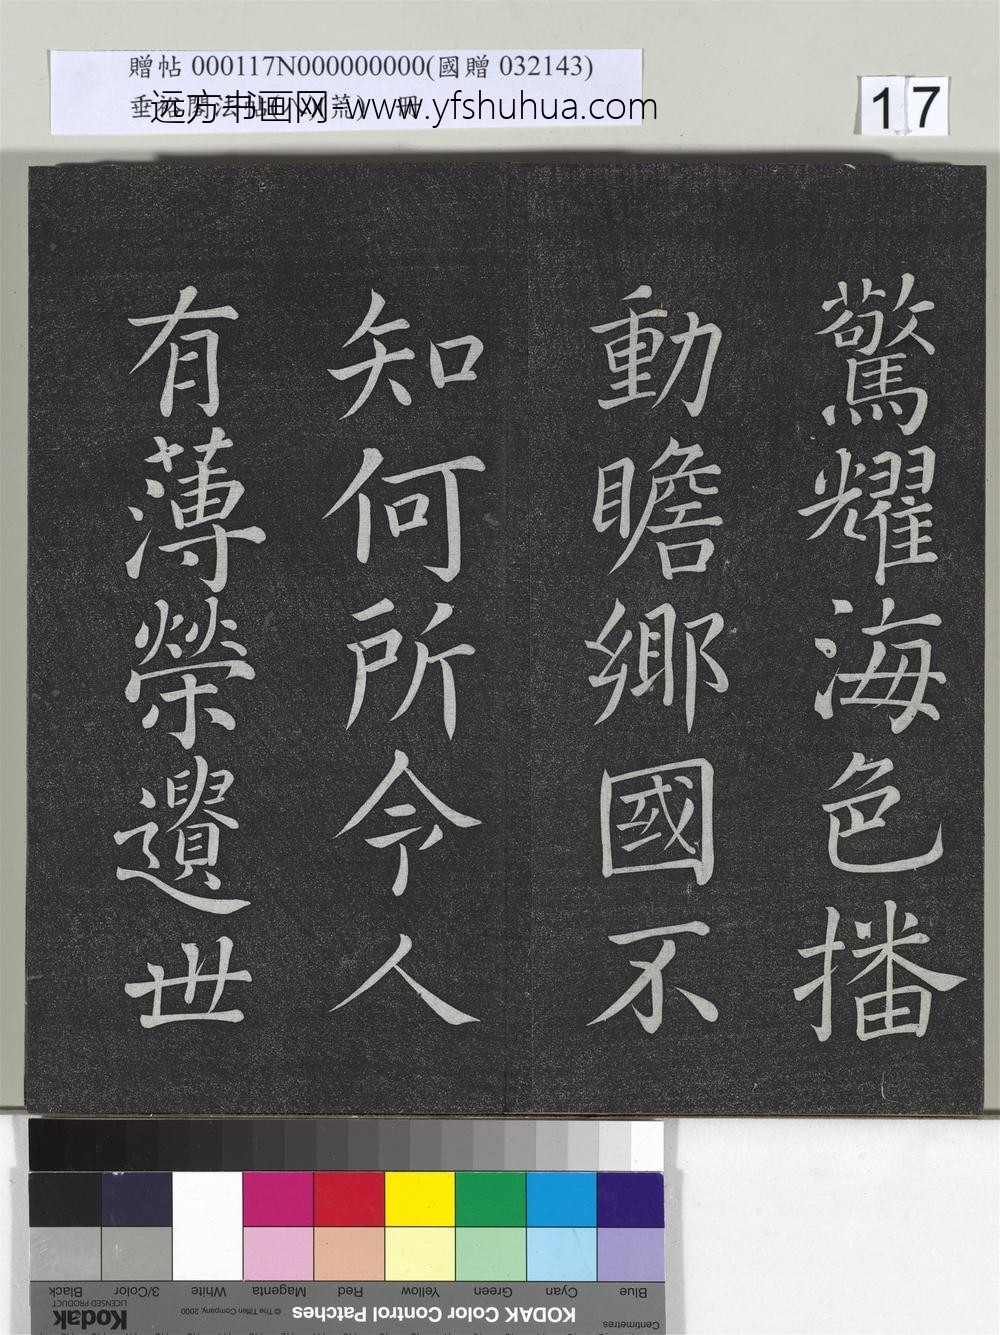 贈帖 000117N000000000(國贈 032143)
远方书画网-www.yfshuhua.com
17
驚耀海色播
動瞻鄉國不
知何所今人
有薄榮遺世
Blue Cyan Green Yellow Red Magenta White 3/Color Black
Centimetres KODAK Color Control Patches © The Tiffen Company, 2000 Kodak LICENSED PRODUCT